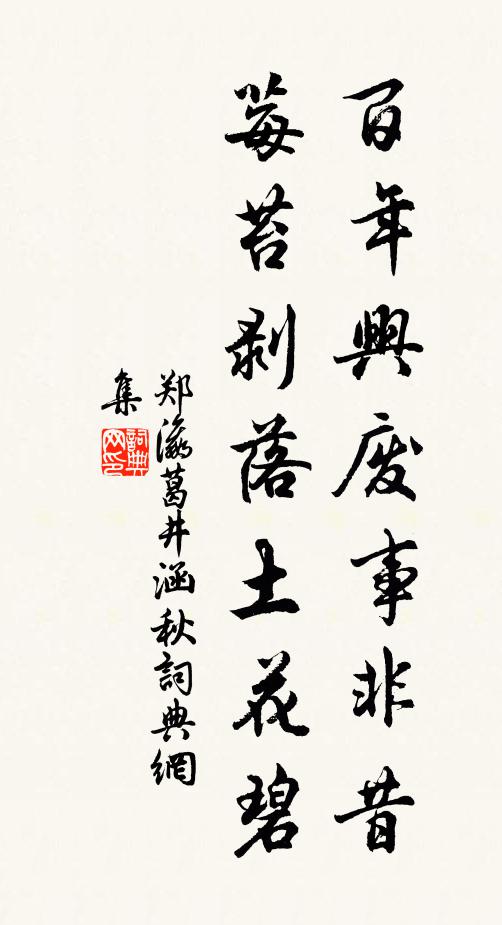 百年興废事非昔
莓苔剥落土花碧
郑瀛葛井涵秋詞典網
集
詞典
网印